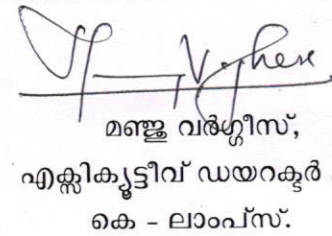 മഞ്ജു വർഗ്ഗീസ്,
എക്സിക്യൂട്ടീവ് ഡയറക്ടർ
കെ - ലാംപ്സ്.